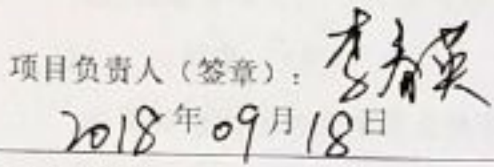 项目负责人（签章）：李春英
2018年09月18日